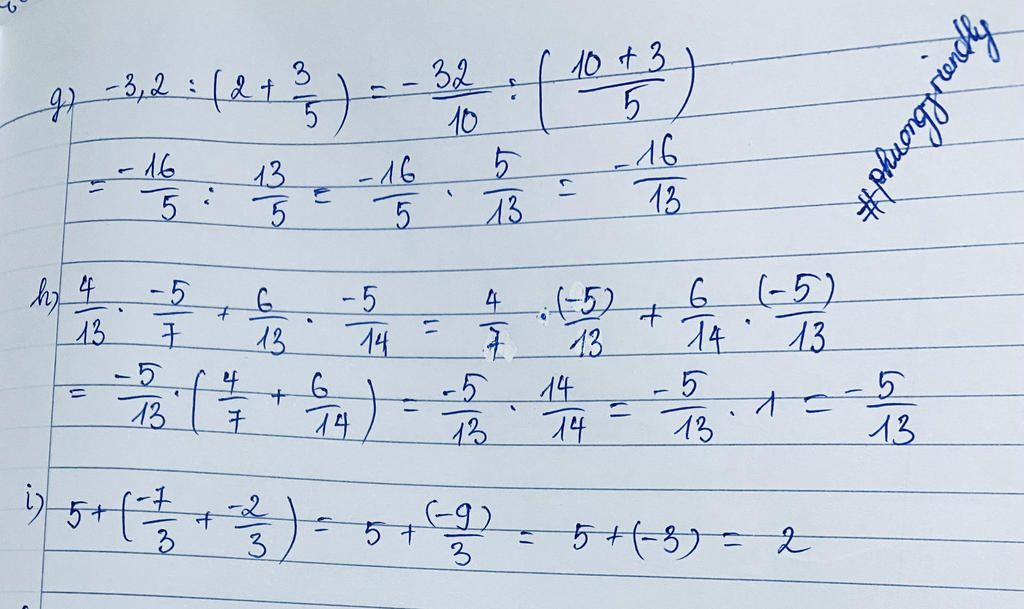 g) -3,2 : (2 + 3/5) = -32/10 : (10 + 3/5)
= -16/5 : 13/5 = -16/5 . 5/13 = -16/13
h) 4/13 . -5/7 + 6/13 . -5/14 = 4/7 . (-5)/13 + 6/14 . (-5)/13
= -5/13 . (4/7 + 6/14) = -5/13 . 14/14 = -5/13 . 1 = -5/13
i) 5 + (-7/3 + -2/3) = 5 + (-9)/3 = 5 + (-3) = 2